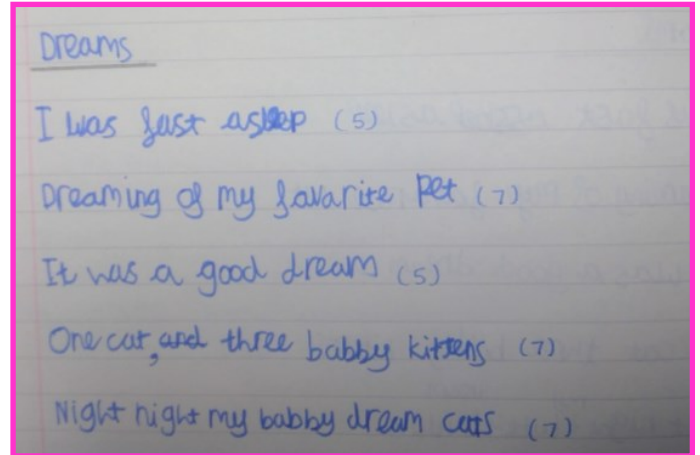 Dreams
I was fast asleep (5)
Dreaming of my favarite pet (7)
It was a good dream (5)
One cat, and three babby kittens (7)
Night night my babby dream cats (7)